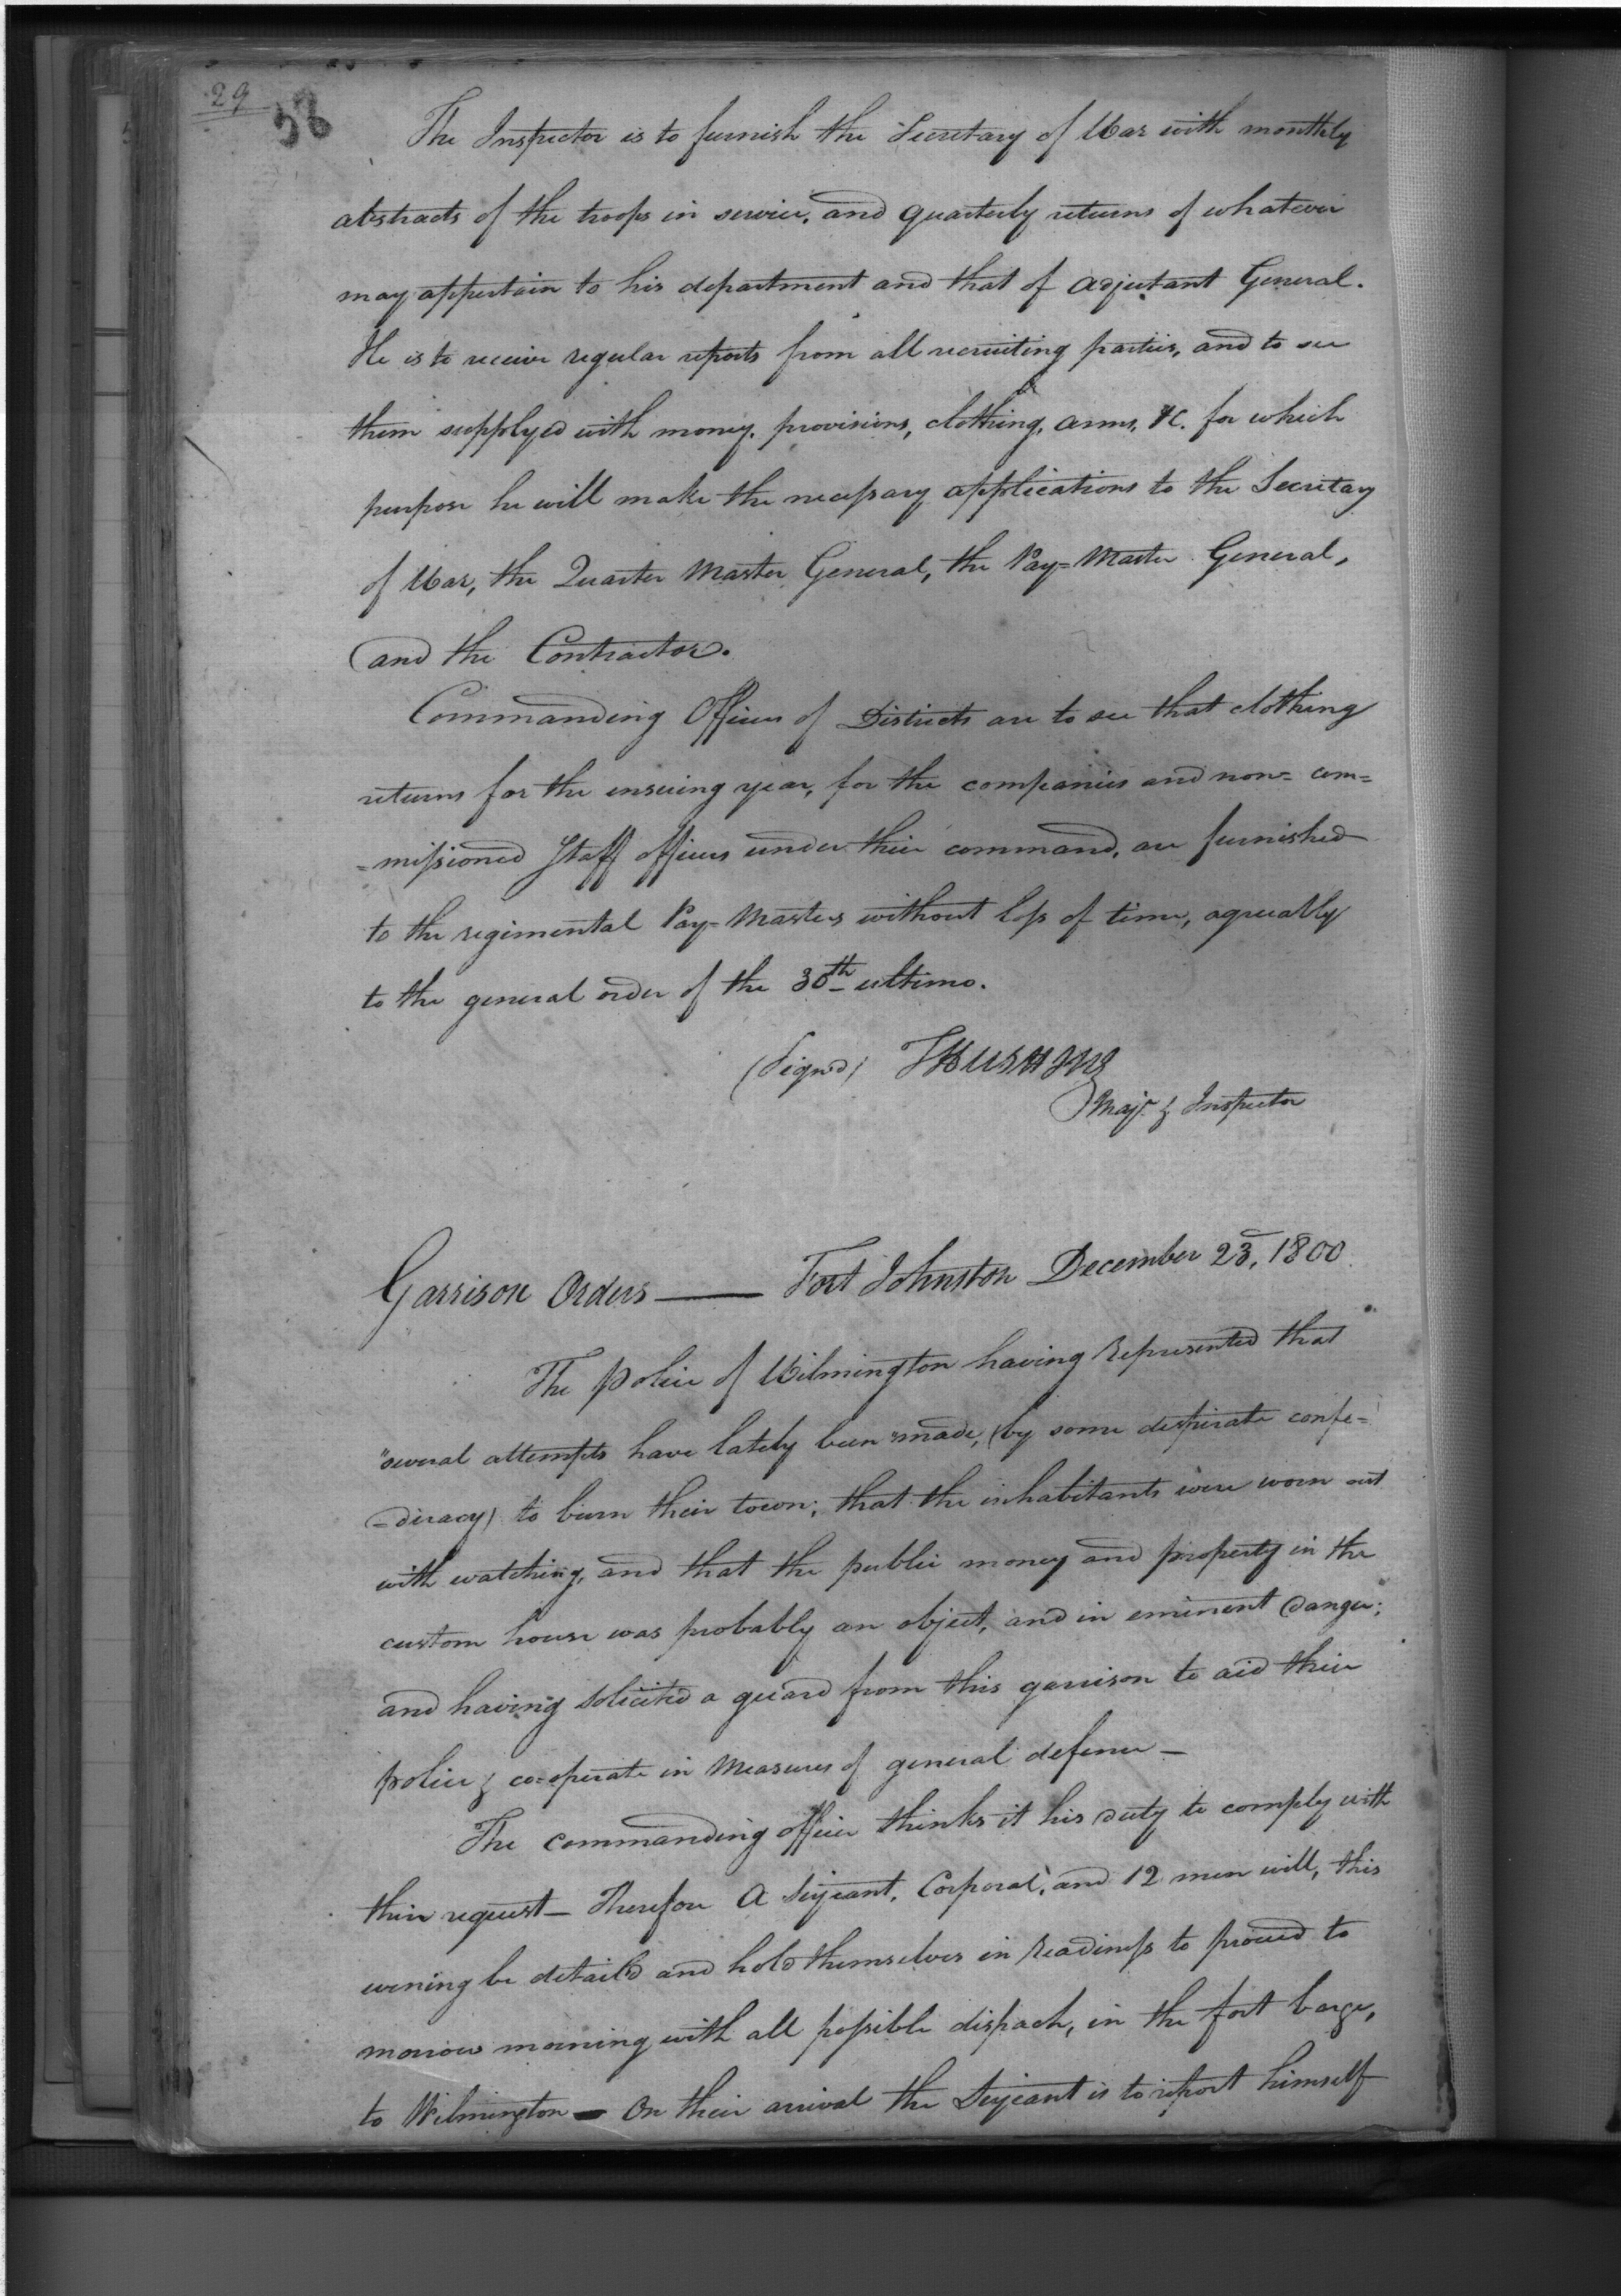 29
58
The Inspector is to furnish the Secretary of War with monthly
abstracts of the troops in service, and quarterly returns of whatever
may appertain to his department and that of Adjutant General.
He is to receive regular reports from all recruiting parties, and to see
them supplyed with money, provisions, clothing, arms, &c. for which
purpose he will make the necessary applications to the Secretary
of War, the Quarter Master General, the Pay-Master General,
and the Contractor.
Commanding Officers of Districts are to see that clothing
returns for the ensuing year, for the companies and non= com=
=missioned Staff officers under their command, are furnished
to the regimental Pay-Masters without loss of time, agreeably
to the general order of the 30th ultimo.
(Signd) T H CUSHING
Majr & Inspector
Garrison Orders — Fort Johnston December 23, 1800.
The Police of Wilmington having represented that
"several attempts have lately been made, (by some desperate confe=
=deracy) to burn their town; that the inhabitants were worn out
with watching, and that the public money and property in the
custom house was probably an object, and in eminent danger;
and having solicited a guard from this garrison to aid their
police & co=operate in measures of general defence —
The commanding officer thinks it his duty to comply with
their request — Therefore A Serjeant, Corporal, and 12 men will, this
evening be detail'd and hold themselves in readiness to proceed to
morrow morning with all possible dispach, in the fort barge,
to Wilmington — On their arrival the Serjeant is to report himself